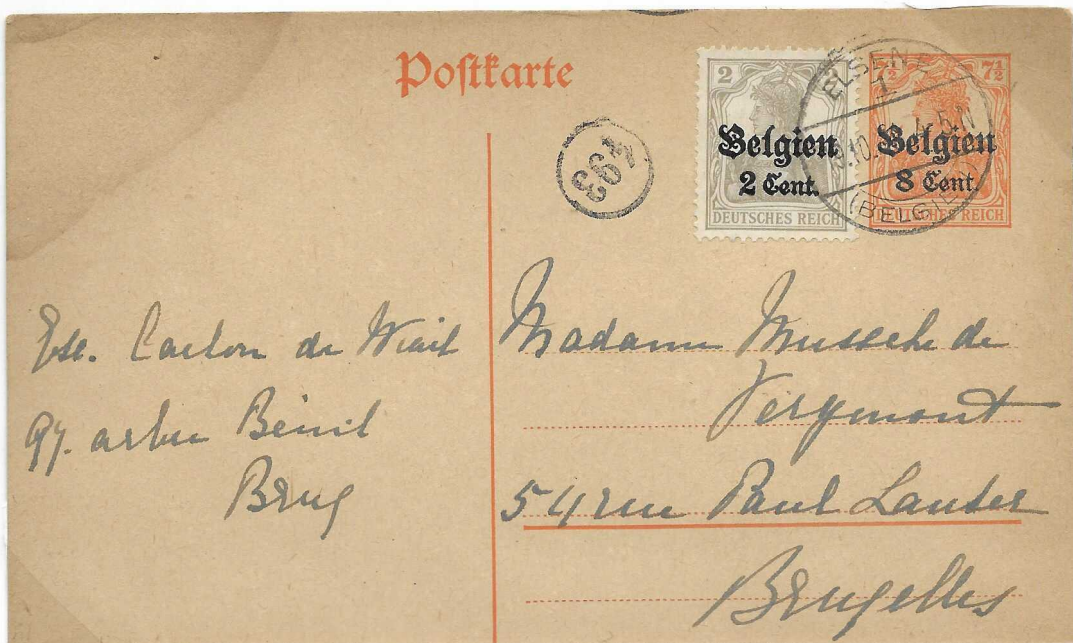 Postkarte
2
Belgien
2 Cent.
DEUTSCHES REICH
7½ 7½
Belgien
8 Cent.
DEUTSCHES REICH
ELSENE
1
(BELGIEN)
493
Carton de Wiart
97. arbre Bénit
Brux
Madame Mussche de
Vergmont
54 rue Paul Lauter
Bruxelles